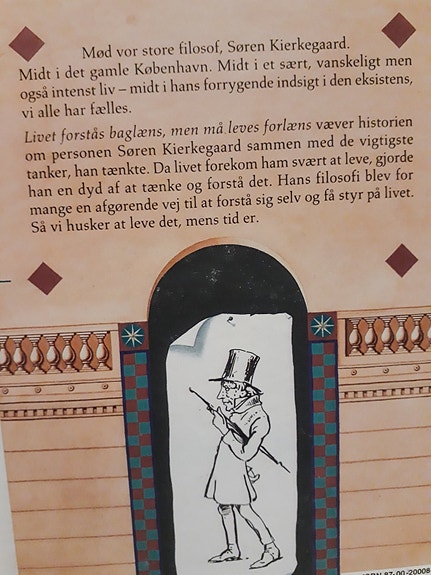 Mød vor store filosof, Søren Kierkegaard.
Midt i det gamle København. Midt i et sært, vanskeligt men
også intenst liv – midt i hans forrygende indsigt i den eksistens,
vi alle har fælles.
Livet forstås baglæns, men må leves forlæns væver historien
om personen Søren Kierkegaard sammen med de vigtigste
tanker, han tænkte. Da livet forekom ham svært at leve, gjorde
han en dyd af at tænke og forstå det. Hans filosofi blev for
mange en afgørende vej til at forstå sig selv og få styr på livet.
Så vi husker at leve det, mens tid er.
87-00-20008